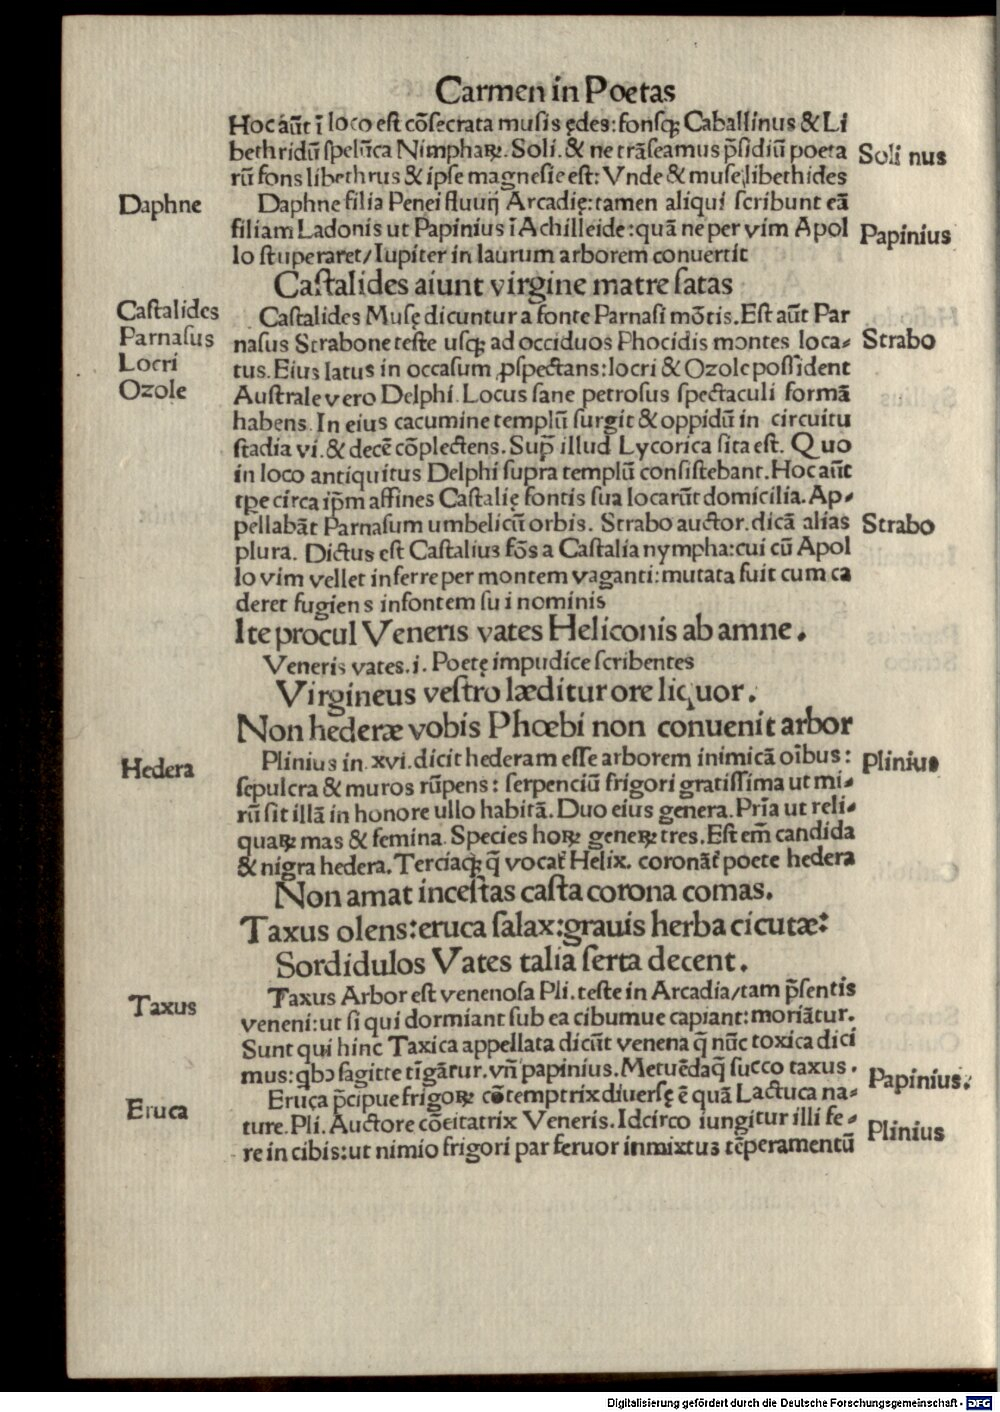 Carmen in Poetas
Hoc aūt ī loco est cōsecrata musis ędes: fonsqꝫ Caballinus & Li
bethridū spelūca Nimphaꝝ. Soli. & ne trāseamus p̄sidiū poeta
Soli nus
rū fons libethrus & ipse magnesie est: Vnde & muse libethides
Daphne
Daphne filia Penei fluuij Arcadię: tamen aliqui scribunt eā
filiam Ladonis ut Papinius ī Achilleide: quā ne per vim Apol
Papinius
lo stuperaret/ Iupiter in laurum arborem conuertit
Castalides aiunt virgine matre satas
Castalides
Castalides Musę dicuntur a fonte Parnasi mōtis. Est aūt Par
Parnasus
nasus Strabone teste usqꝫ ad occiduos Phocidis montes loca-
Strabo
Locri
tus. Eius latus in occasum ꝓspectans: locri & Ozole possident
Ozole
Australe vero Delphi. Locus sane petrosus spectaculi formā
habens. In eius cacumine templū surgit & oppidū in circuitu
stadia vi. & decē cōplectens. Sup̄ illud Lycorica sita est. Quo
in loco antiquitus Delphi supra templū consistebant. Hoc aūt
tp̄e circa ip̄m affines Castalię fontis sua locarūt domicilia. Ap-
pellabāt Parnasum umbelicū orbis. Strabo auctor. dicā alias
Strabo
plura. Dictus est Castalius fōs a Castalia nympha: cui cū Apol
lo vim vellet inferre per montem vaganti: mutata fuit cum ca
deret fugiens in fontem sui nominis
Ite procul Veneris vates Heliconis ab amne.
Veneris vates. i. Poetę impudice scribentes
Virgineus vestro læditur ore liquor.
Non hederæ vobis Phœbi non conuenit arbor
Hedera
Plinius in .xvi. dicit hederam esse arborem inimicā oībus:
Plinius
sepulcra & muros rūpens: serpenciū frigori gratissima ut mi-
rū sit illā in honore ullo habitā. Duo eius genera. Prīa ut reli-
quaꝝ mas & femina. Species hoꝝ geneꝝ tres. Est em̄ candida
& nigra hedera. Terciaqꝫ q̄ vocat̄ Helix. coronāt̄ poete hedera
Non amat incestas casta corona comas.
Taxus olens: eruca salax: grauis herba cicutæ:
Sordidulos Vates talia serta decent.
Taxus
Taxus Arbor est venenosa Pli. teste in Arcadia/ tam p̄sentis
veneni: ut si qui dormiant sub ea cibumue capiant: moriātur.
Sunt qui hinc Taxica appellata dicūt venena q̄ nūc toxica dici
mus: qbꝫ sagitte tīgātur. vn̄ papinius. Metuēdaq̄ succo taxus.
Papinius.
Eruca
Eruca p̄cipue frigoꝝ cōtemptrix diuersę ē quā Lactuca na-
ture. Pli. Auctore cōcitatrix Veneris. Idcirco iungitur illi fe-
Plinius
re in cibis: ut nimio frigori par feruor inmixtus tēperamentū
Digitalisierung gefördert durch die Deutsche Forschungsgemeinschaft - DFG